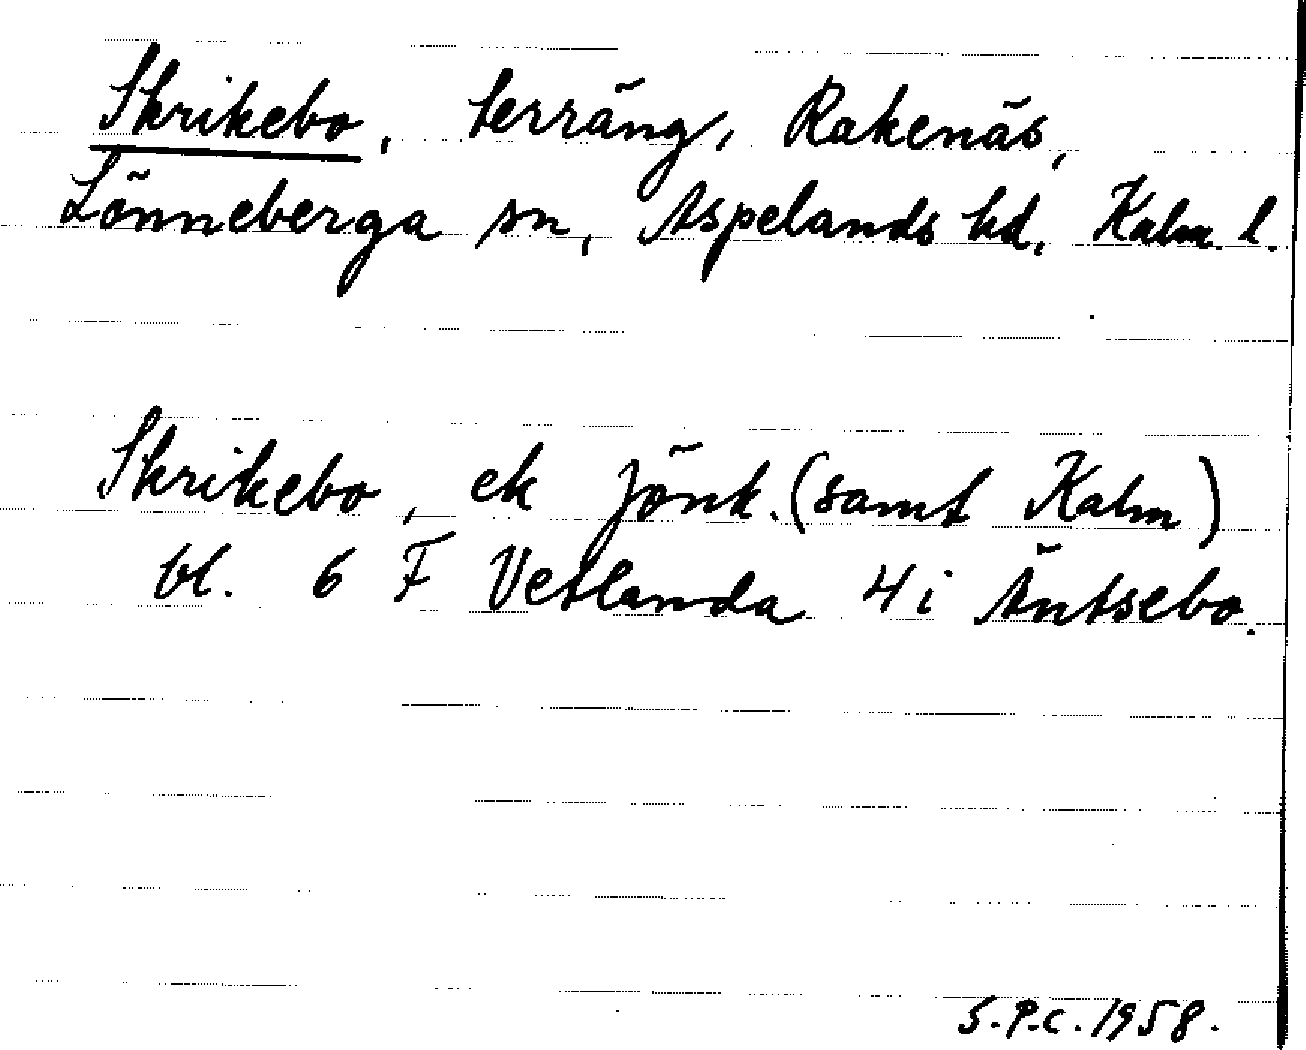 Skrikebo, terräng, Rakenäs,
Lönneberga sn, Aspelands hd, Kalm. l.
Skrikebo, ek Jönk. (samt Kalm)
bl. 6 F Vetlanda 4 i Äntsebo.
S.P.C. 1958.